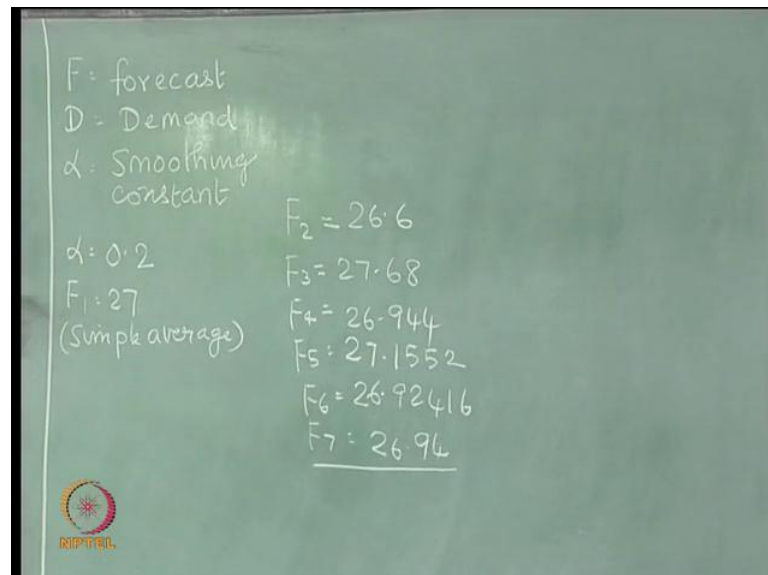 F = forecast
D = Demand
α = Smoothing
constant
α = 0.2
F₁ = 27
(Simple average)
F₂ = 26.6
F₃ = 27.68
F₄ = 26.944
F₅ = 27.1552
F₆ = 26.92416
F₇ = 26.94
NPTEL